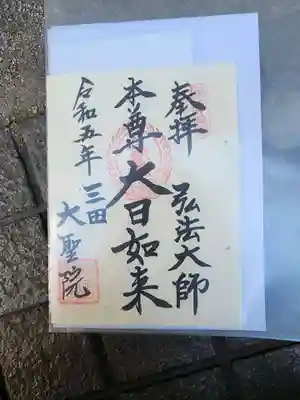 奉拝
弘法大師
本尊大日如来
令和五年
三田
大聖院